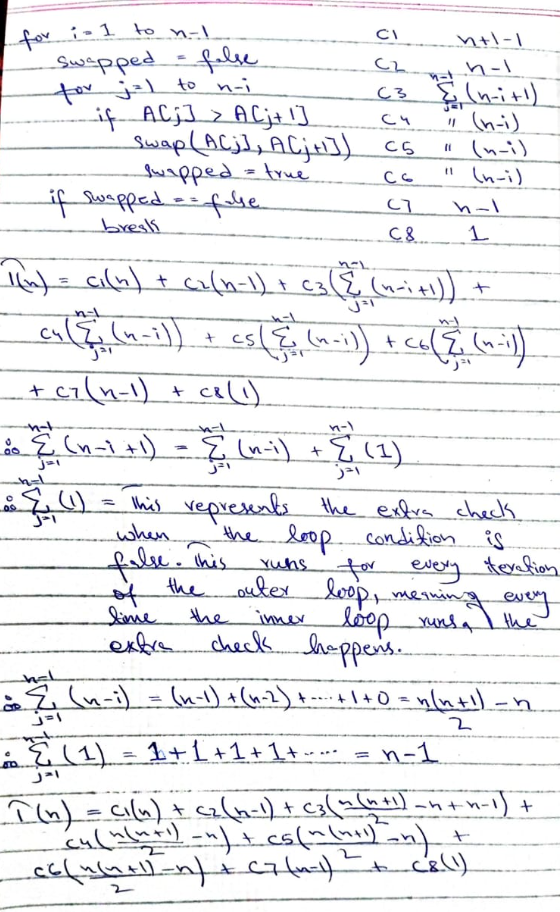 for i=1 to n-1 C1 n+1-1
swapped = false C2 n-1
for j=1 to n-i C3 n-1 Σ j=1 (n-i+1)
if A[j] > A[j+1] C4 " (n-i)
swap(A[j], A[j+1]) C5 " (n-i)
swapped = true C6 " (n-i)
if swapped == false C7 n-1
break C8 1
T(n) = C1(n) + C2(n-1) + C3(n-1 Σ j=1 (n-i+1)) +
C4(n-1 Σ j=1 (n-i)) + C5(n-1 Σ j=1 (n-i)) + C6(n-1 Σ j=1 (n-i))
+ C7(n-1) + C8(1)
n-1 Σ j=1 (n-i+1) = n-1 Σ j=1 (n-i) + n-1 Σ j=1 (1)
n-1 Σ j=1 (1) = This represents the extra check
when the loop condition is
false. This runs for every iteration
of the outer loop, meaning every
time the inner loop runs, the
extra check happens.
n-1 Σ j=1 (n-i) = (n-1)+(n-2)+....+1+0 = n(n+1)/2 - n
n-1 Σ j=1 (1) = 1+1+1+1+..... = n-1
T(n) = C1(n) + C2(n-1) + C3(n(n+1)/2 - n + n-1) +
C4(n(n+1)/2 - n) + C5(n(n+1)/2 - n) +
C6(n(n+1)/2 - n) + C7(n-1) + C8(1)